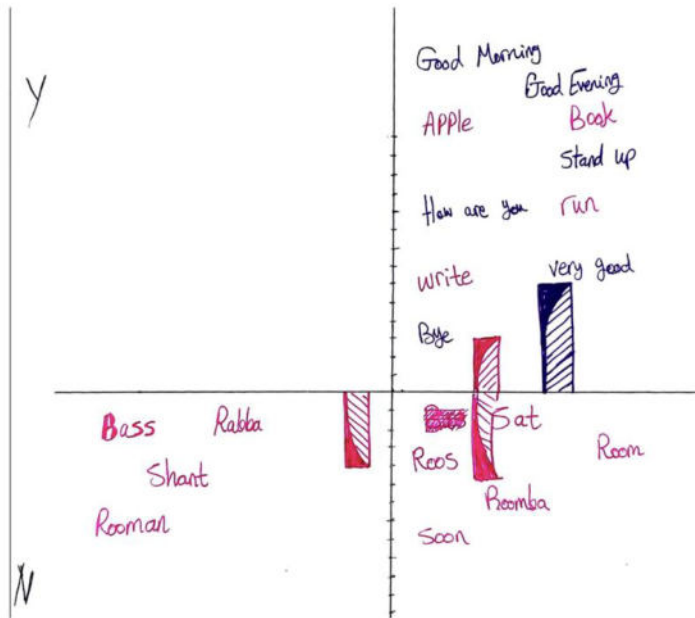 Good Morning
Good Evening
Y
APPle
Book
Stand up
How are you
run
write
very good
Bye
Bass
Rabba
Sat
Roos
Room
Shant
Roomba
Rooman
Soon
N